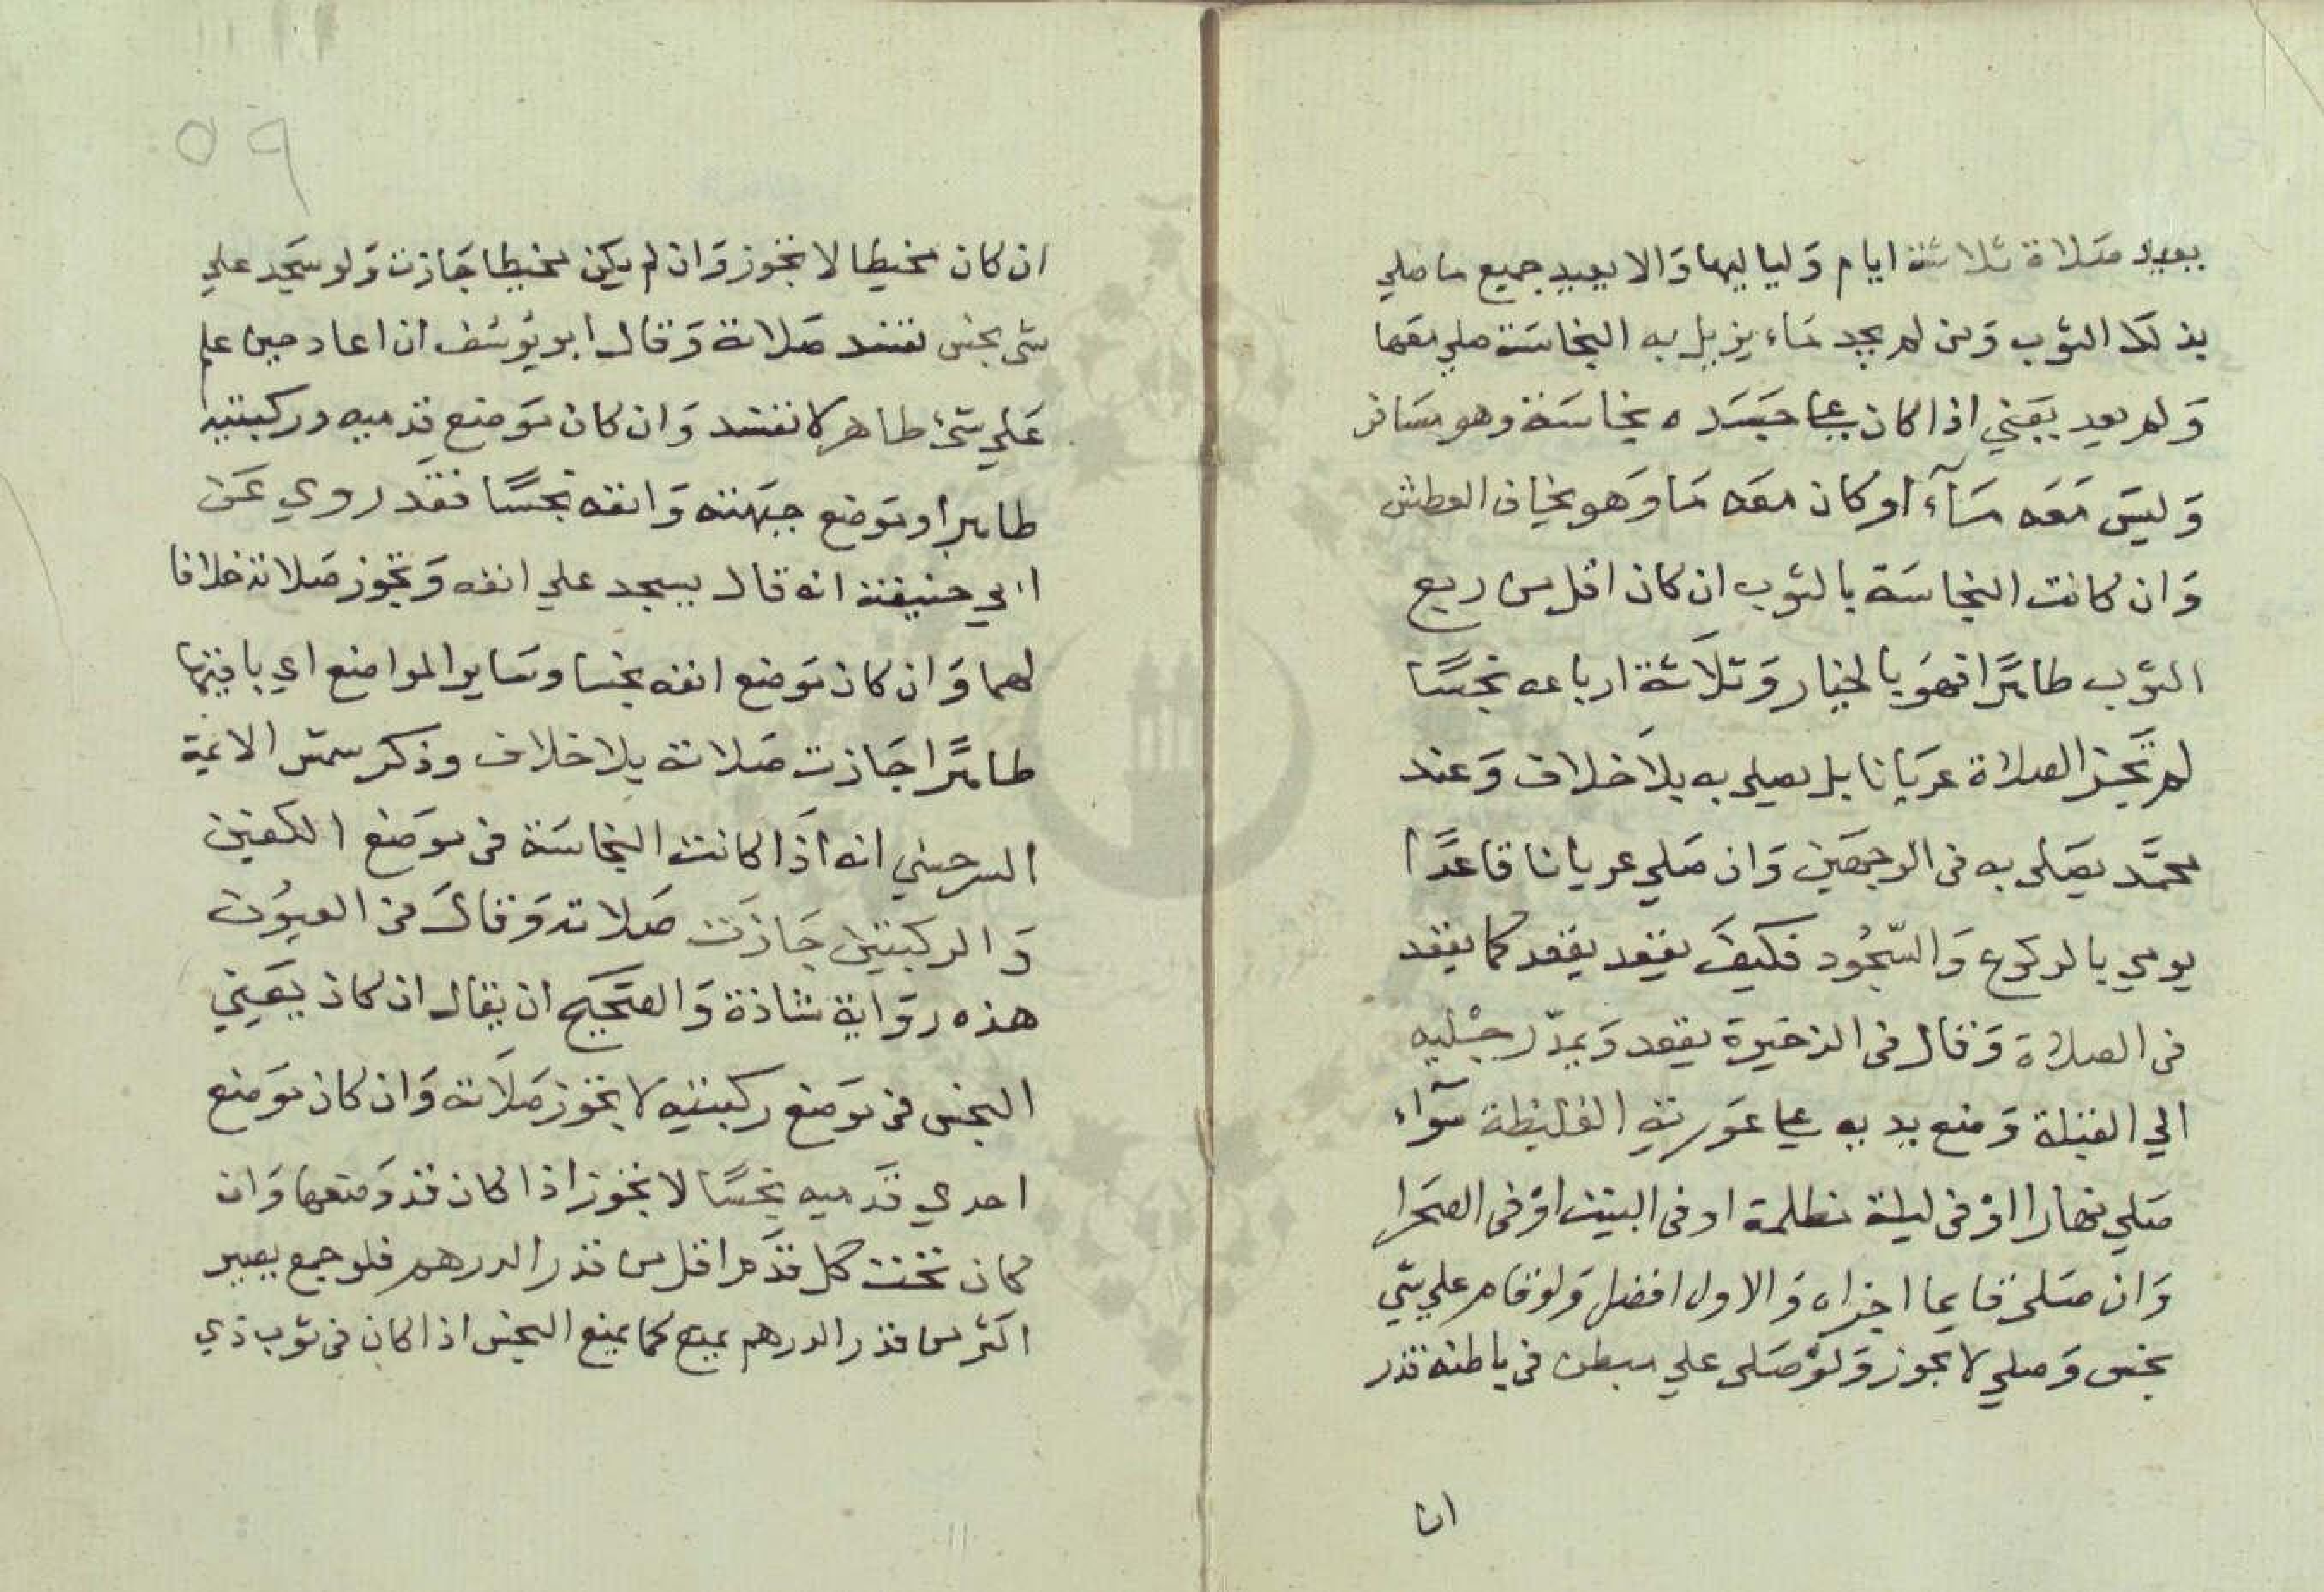 يعيد صلاة ثلاثة ايام وَلياليها وَالا يعيد جميع ما صلي
بذلك الثوب وَمن لم يجد مَاء يزيل به النجاسَة صلي معها
وَلم يعد يَعني اذا كان علي جسَده نجاسَة وهو مسَافر
وَليسَ مَعَه مَآء او كان معَه مَا وَهو يخاف العطش
وَان كانت النجاسَة بالثوب ان كان اقل من ربع
الثوب طاهرًا فهوَ بالخيار وَثلاَثة ارباعه نجسًا
لم تَجز الصلاة عريَانا بل يصلي به بلاَ خلاف وَعند
محمَّد يصَلي به في الوجهَين وَان صَلي عريانا قاعدًا
يومي بالركوع وَالسّجُود فكيفَ يقعد يقعد كما يقعد
في الصلاة وَقال في الذخيرة يقعد وَيمدّ رجْليه
الي القبلة وَضع يديه علي عَورته الغليظة سَوآء
صَلي نهارا اوْ في ليلة مظلمة او في البيت اوْ في الصَحرا
وَان صَلي قايما اجزاه وَالاول افضل وَلو قام علي شي
نجس وَصلي لا يجوز وَلوْ صَلي علي مبطن في باطنه قذر
ان
٥٩
ان كان مخيطا لا تجَوز وَان لم يكن مخيطا جَازت وَلو سَجَد علي
شي نجس تفسد صَلاته وَقال ابو يُوسُف ان اعاد حين علم
عَلي شيْ طاهر لا تفسد وَان كان مَوضع قدميه وركبتيه
طاهرا ومَوضع جبهَته وَانفه نجسًا فقَد روي عَن
ابي حنيفة انه قال يسجد علي انفه وَتجَوز صَلاته خلافا
لهما وَان كان مَوضع انفه نجسا وسَاير المواضع اي باقيها
طاهرًا جَازت صَلاته بلا خلاف وذكر شمس الايمة
السرخسي انه اذَا كانت النجاسَة في مَوضع الكفين
وَالركبتين جَازَت صَلاته وَقالَ في العيوُن
هذه روَاية شاذة وَالصَحَيح ان يقال ان كان يَعَني
النجس في مَوضع ركبتيه لا تجَوز صَلاَته وَان كان مَوضع
احدي قدَميه نجسًا لا تجَوز اذا كان قد وَضعها وَان
كان تحت كل قدَم اقل من قدر الدرهم فلو جمع يصير
اكثر من قدر الدرهم يمنع كما يمنع النجس اذا كان في ثوب ذي